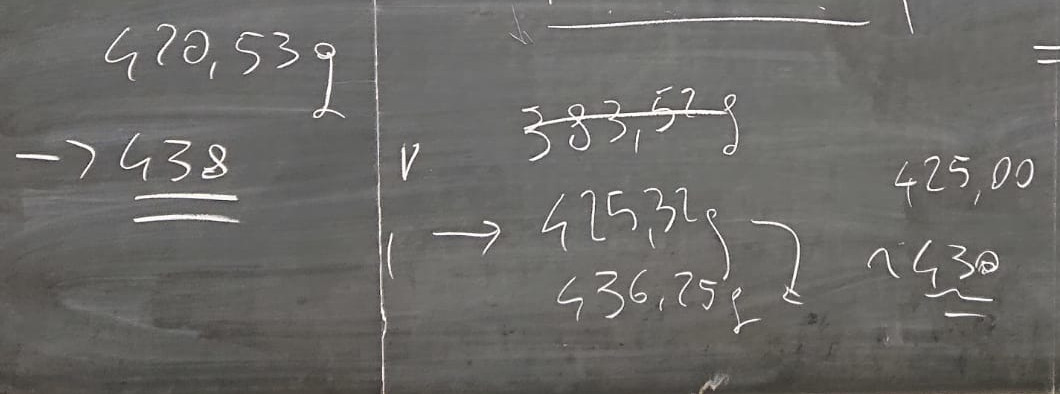 420,53g
→ 438
383,52g
→ 425,32g
436,25g
425,00
~430